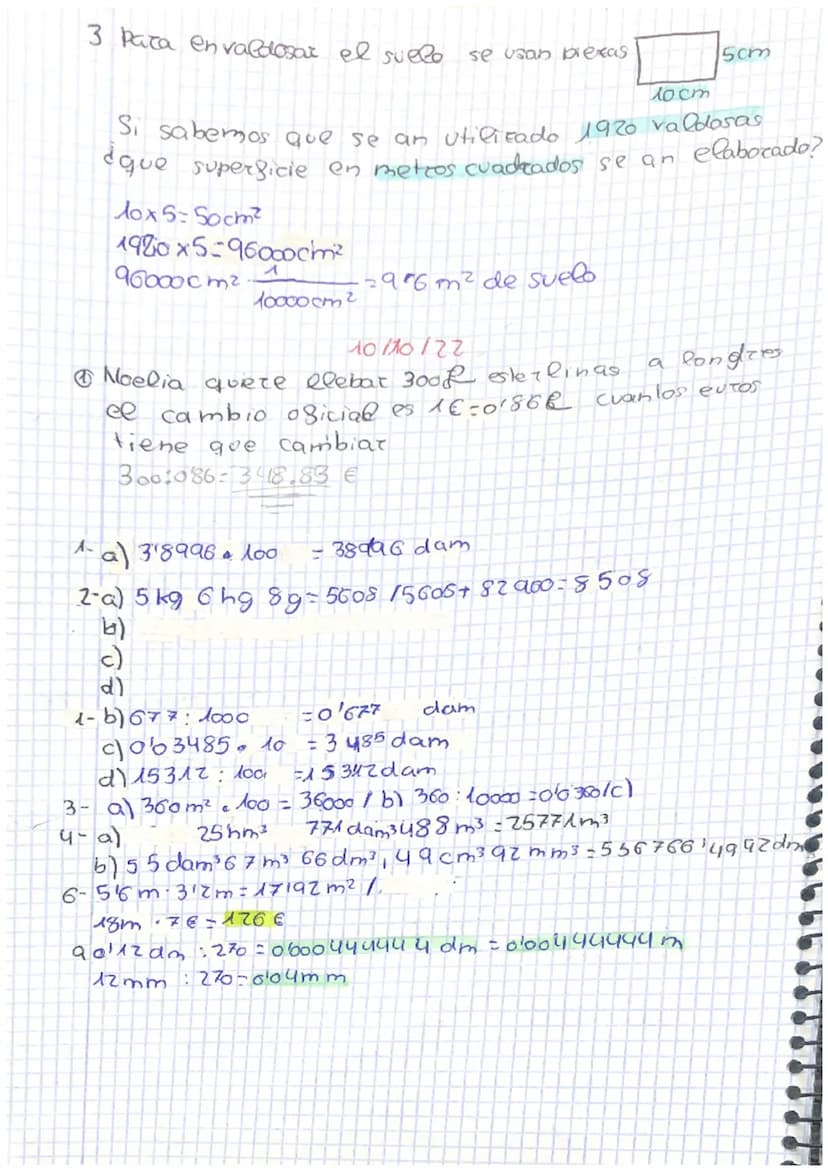 3 Para envaldosar el suelo se usan piezas 5cm
10cm
Si sabemos que se an utilizado 1920 valdosas
¿que superficie en metros cuadrados se an elaborado?
10x5=50cm²
1920x5=96000cm²
96000cm² · 1/10000cm² = 9'6 m² de suelo
10/10/22
① Noelia quere llebar 300£ esterlinas a londres
el cambio oficial es 1€=0'86£ cuantos euros
tiene que cambiar
300:086=348.83 €
1- a) 3'8996 · 100 = 38996 dam
2-a) 5kg 6hg 8g=5608 /5606+ 82900=8508
b)
c)
d)
1- b) 677: 1000 =0'677 dam
c) 0'03485 · 10 = 3485 dam
d) 15312 : 100 =15312dam
3- a) 360m² · 100 = 36000 / b) 360:10000=0'0360/c)
4- a) 25hm³ 771dam³ 488m³=25771m³
b) 55dam³ 67m³ 66dm³, 49cm³ 92mm³=556766'4992dm
6- 5'6m·3'2m=17'92m² /.
18m · 7€=126€
9 0'12dm :270=0'000444444dm=0'00444444m
12mm : 270=0'04mm